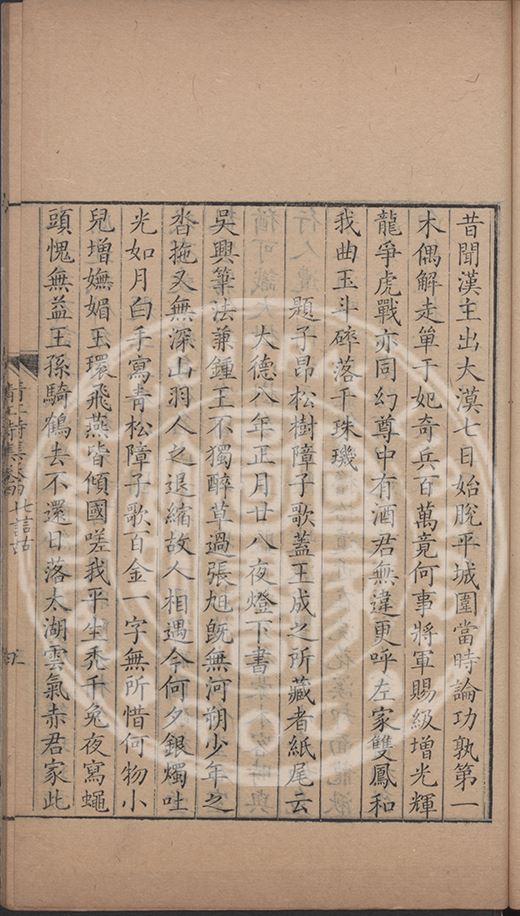 昔聞漢主出大漠七日始脫平城圍當時論功孰第一
木偶解走單于妃奇兵百萬竟何事將軍賜級增光輝
龍爭虎戰亦同幻尊中有酒君無違更呼左家雙鳳和
我曲玉斗碎落千珠璣
題子昂松樹障子歌蓋王成之所藏者紙尾云
大德八年正月廿八夜燈下書
吳興筆法兼鍾王不獨醉草過張旭旣無河朔少年之
沓拖又無深山羽人之退縮故人相遇今何夕銀燭吐
光如月白手寫青松障子歌百金一字無所惜何物小
兒增嫵媚玉環飛燕皆傾國嗟我平生禿千兔夜寫蠅
頭愧無益王孫騎鶴去不還日落太湖雲氣赤君家此
七言古